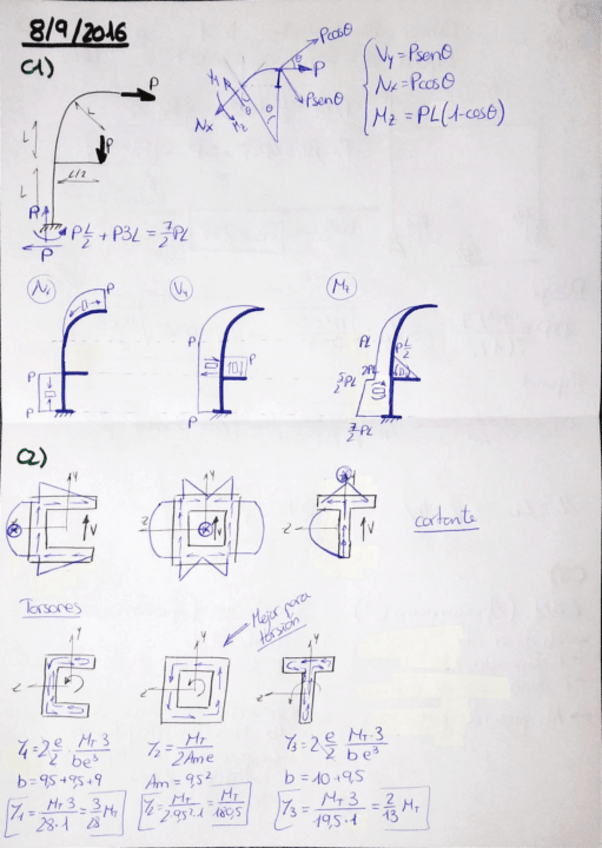 8/9/2016
C1)
P
P
L
L
L/2
P
P L/2 + P3L = 7/2 PL
Pcosθ
P
Psenθ
θ
θ
Nx
Mz
Vy = Psenθ
Nx = Pcosθ
Mz = PL(1-cosθ)
Nx
Vy
Mz
P
P
P
P
P
P
PL
P L/2
2PL
5/2 PL
7/2 PL
C2)
y
V
y
z
V
z
V
cortante
Torsores
Mejor para
torsión
y
z
y
z
y
z
τ1 = 2 e/2 · MT·3/be³
b = 9,5+9,5+9
τ1 = MT 3/28·1 = 3/28 MT
τ2 = MT/2Ame
Am = 9,5²
τ2 = MT/2·9,5²·1 = MT/180,5
τ3 = 2 e/2 · MT·3/be³
b = 10+9,5
τ3 = MT 3/19,5·1 = 2/13 MT